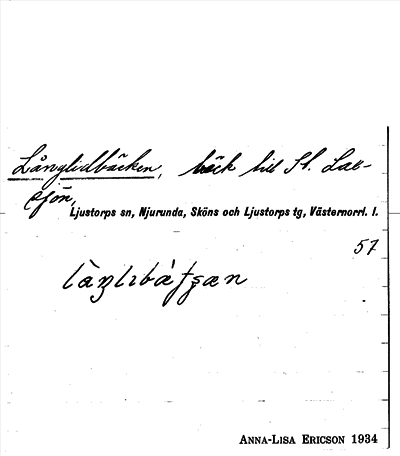 Långlidbäcken, bäck till St. Lax-
sjön,
Ljustorps sn, Njurunda, Sköns och Ljustorps tg, Västernorrl. l.
57
ANNA-LISA ERICSON 1934